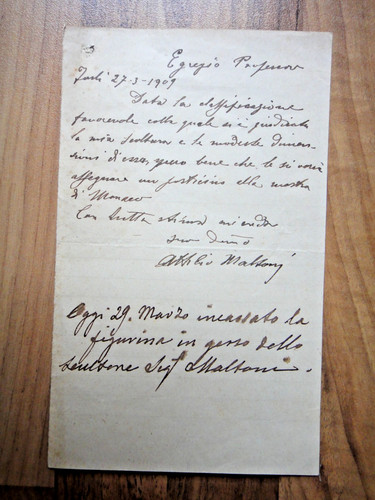 3
Egregio Professore
Forlì 27-3-1909
Data la classificazione
favorevole colla quale si è giudicata
la mia scultura e le modeste dimen-
sioni di essa, spero bene che le si vorrà
assegnare un posticino alla mostra
di Monaco
Con tutta stima mi creda
suo dev.o
Attilio Maltoni
Oggi 29. Marzo incassato la
figurina in gesso dello
scultore Sig. Maltoni.